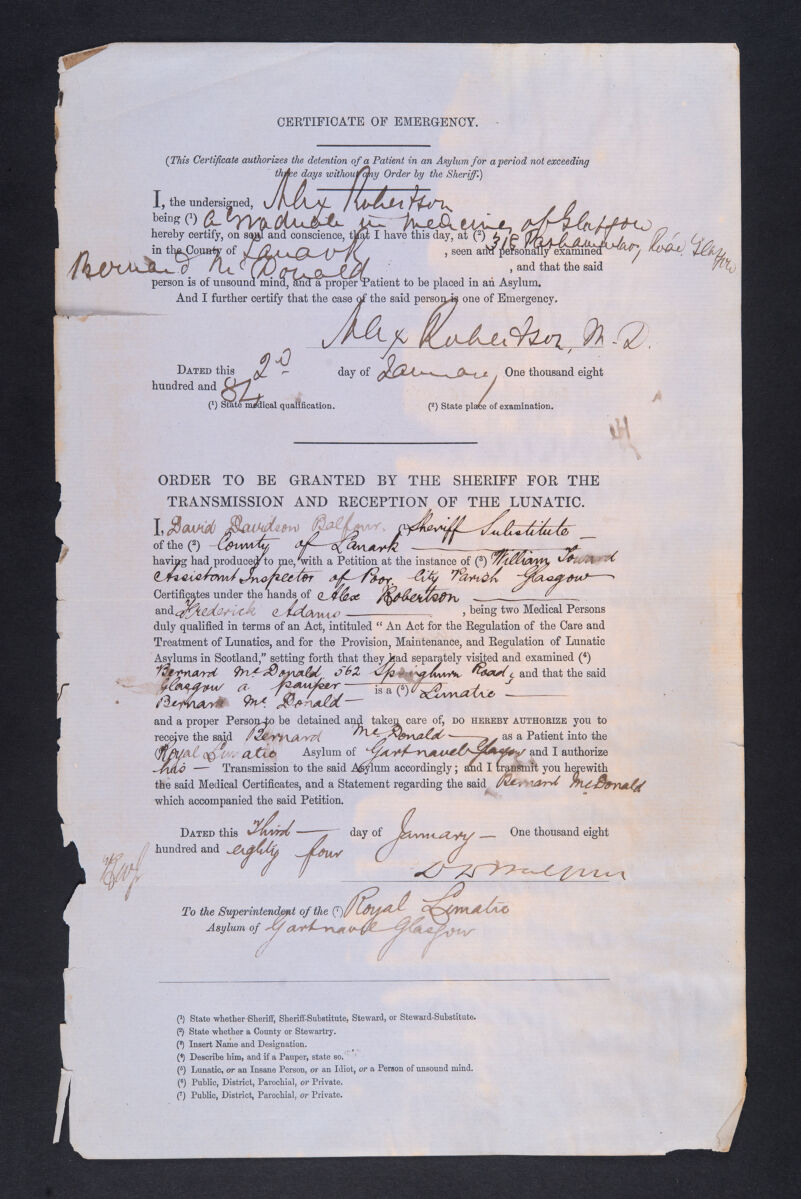 CERTIFICATE OF EMERGENCY.
(This Certificate authorizes the detention of a Patient in an Asylum for a period not exceeding
three days without any Order by the Sheriff.)
I, the undersigned, Alex Robertson
being (1) a Graduate in Medicine of Glasgow
hereby certify, on soul and conscience, that I have this day, at (2) 318 Road, Glasgow
in the County of Lanark, seen and personally examined
Bernard McDonald, and that the said
person is of unsound mind, and a proper Patient to be placed in an Asylum.
And I further certify that the case of the said person is one of Emergency.
Alex Robertson, M.D.
DATED this 2d day of January One thousand eight
hundred and 84
(1) State medical qualification. (2) State place of examination.
ORDER TO BE GRANTED BY THE SHERIFF FOR THE
TRANSMISSION AND RECEPTION OF THE LUNATIC.
I, David Davidson Balfour, Sheriff Substitute
of the (2) County of Lanark
having had produced to me, with a Petition at the instance of (3) William
Assistant Inspector of Poor City Parish Glasgow
Certificates under the hands of Alex Robertson
and Frederick Adams, being two Medical Persons
duly qualified in terms of an Act, intituled "An Act for the Regulation of the Care and
Treatment of Lunatics, and for the Provision, Maintenance, and Regulation of Lunatic
Asylums in Scotland," setting forth that they had separately visited and examined (4)
Bernard McDonald 562 Springburn Road, and that the said
Glasgow a pauper
Bernard McDonald is a (5) Lunatic
and a proper Person to be detained and taken care of, DO HEREBY AUTHORIZE you to
receive the said Bernard McDonald as a Patient into the
Royal Lunatic Asylum of Gartnavel Glasgow and I authorize
his Transmission to the said Asylum accordingly; and I transmit you herewith
the said Medical Certificates, and a Statement regarding the said Bernard McDonald
which accompanied the said Petition.
DATED this Third day of January One thousand eight
hundred and eighty four
D D Balfour
To the Superintendent of the (7) Royal Lunatic
Asylum of Gartnavel Glasgow
(1) State whether Sheriff, Sheriff-Substitute, Steward, or Steward-Substitute.
(2) State whether a County or Stewartry.
(3) Insert Name and Designation.
(4) Describe him, and if a Pauper, state so.
(5) Lunatic, or an Insane Person, or an Idiot, or a Person of unsound mind.
(6) Public, District, Parochial, or Private.
(7) Public, District, Parochial, or Private.